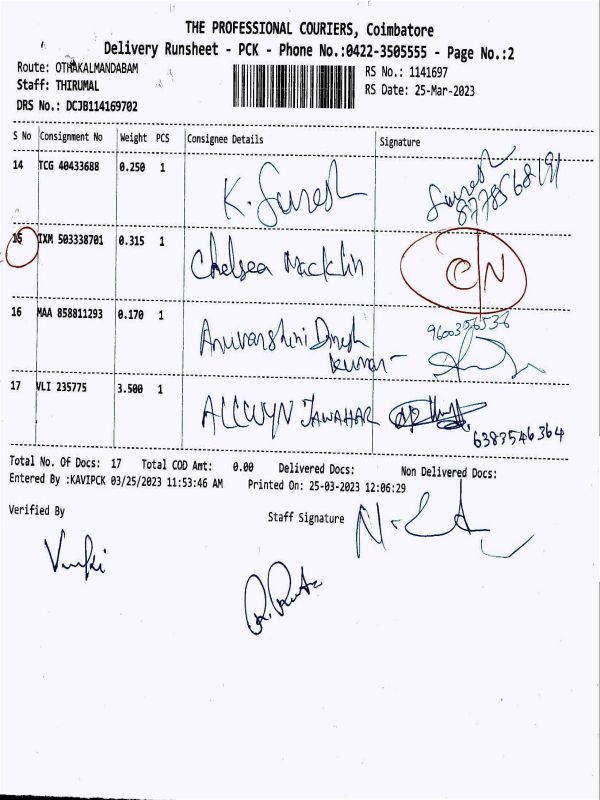 THE PROFESSIONAL COURIERS, Coimbatore
Delivery Runsheet - PCK - Phone No.:0422-3505555 - Page No.:2
Route: OTHAKALMANDABAM
RS No.: 1141697
Staff: THIRUMAL
RS Date: 25-Mar-2023
DRS No.: DCJB114169702
S No Consignment No Weight PCS Consignee Details Signature
14 TCG 40433688 0.250 1 K. Suresh Suresh
8778568191
15 IXM 503338701 0.315 1 Chelsea Macklin CN
16 MAA 858811293 0.170 1 Anuvarshini Dinesh
kumar
17 VLI 235775 3.500 1 ALLWYN JAWAHAR
6383546364
Total No. Of Docs: 17 Total COD Amt: 0.00 Delivered Docs: Non Delivered Docs:
Entered By :KAVIPCK 03/25/2023 11:53:46 AM Printed On: 25-03-2023 12:06:29
Verified By Staff Signature